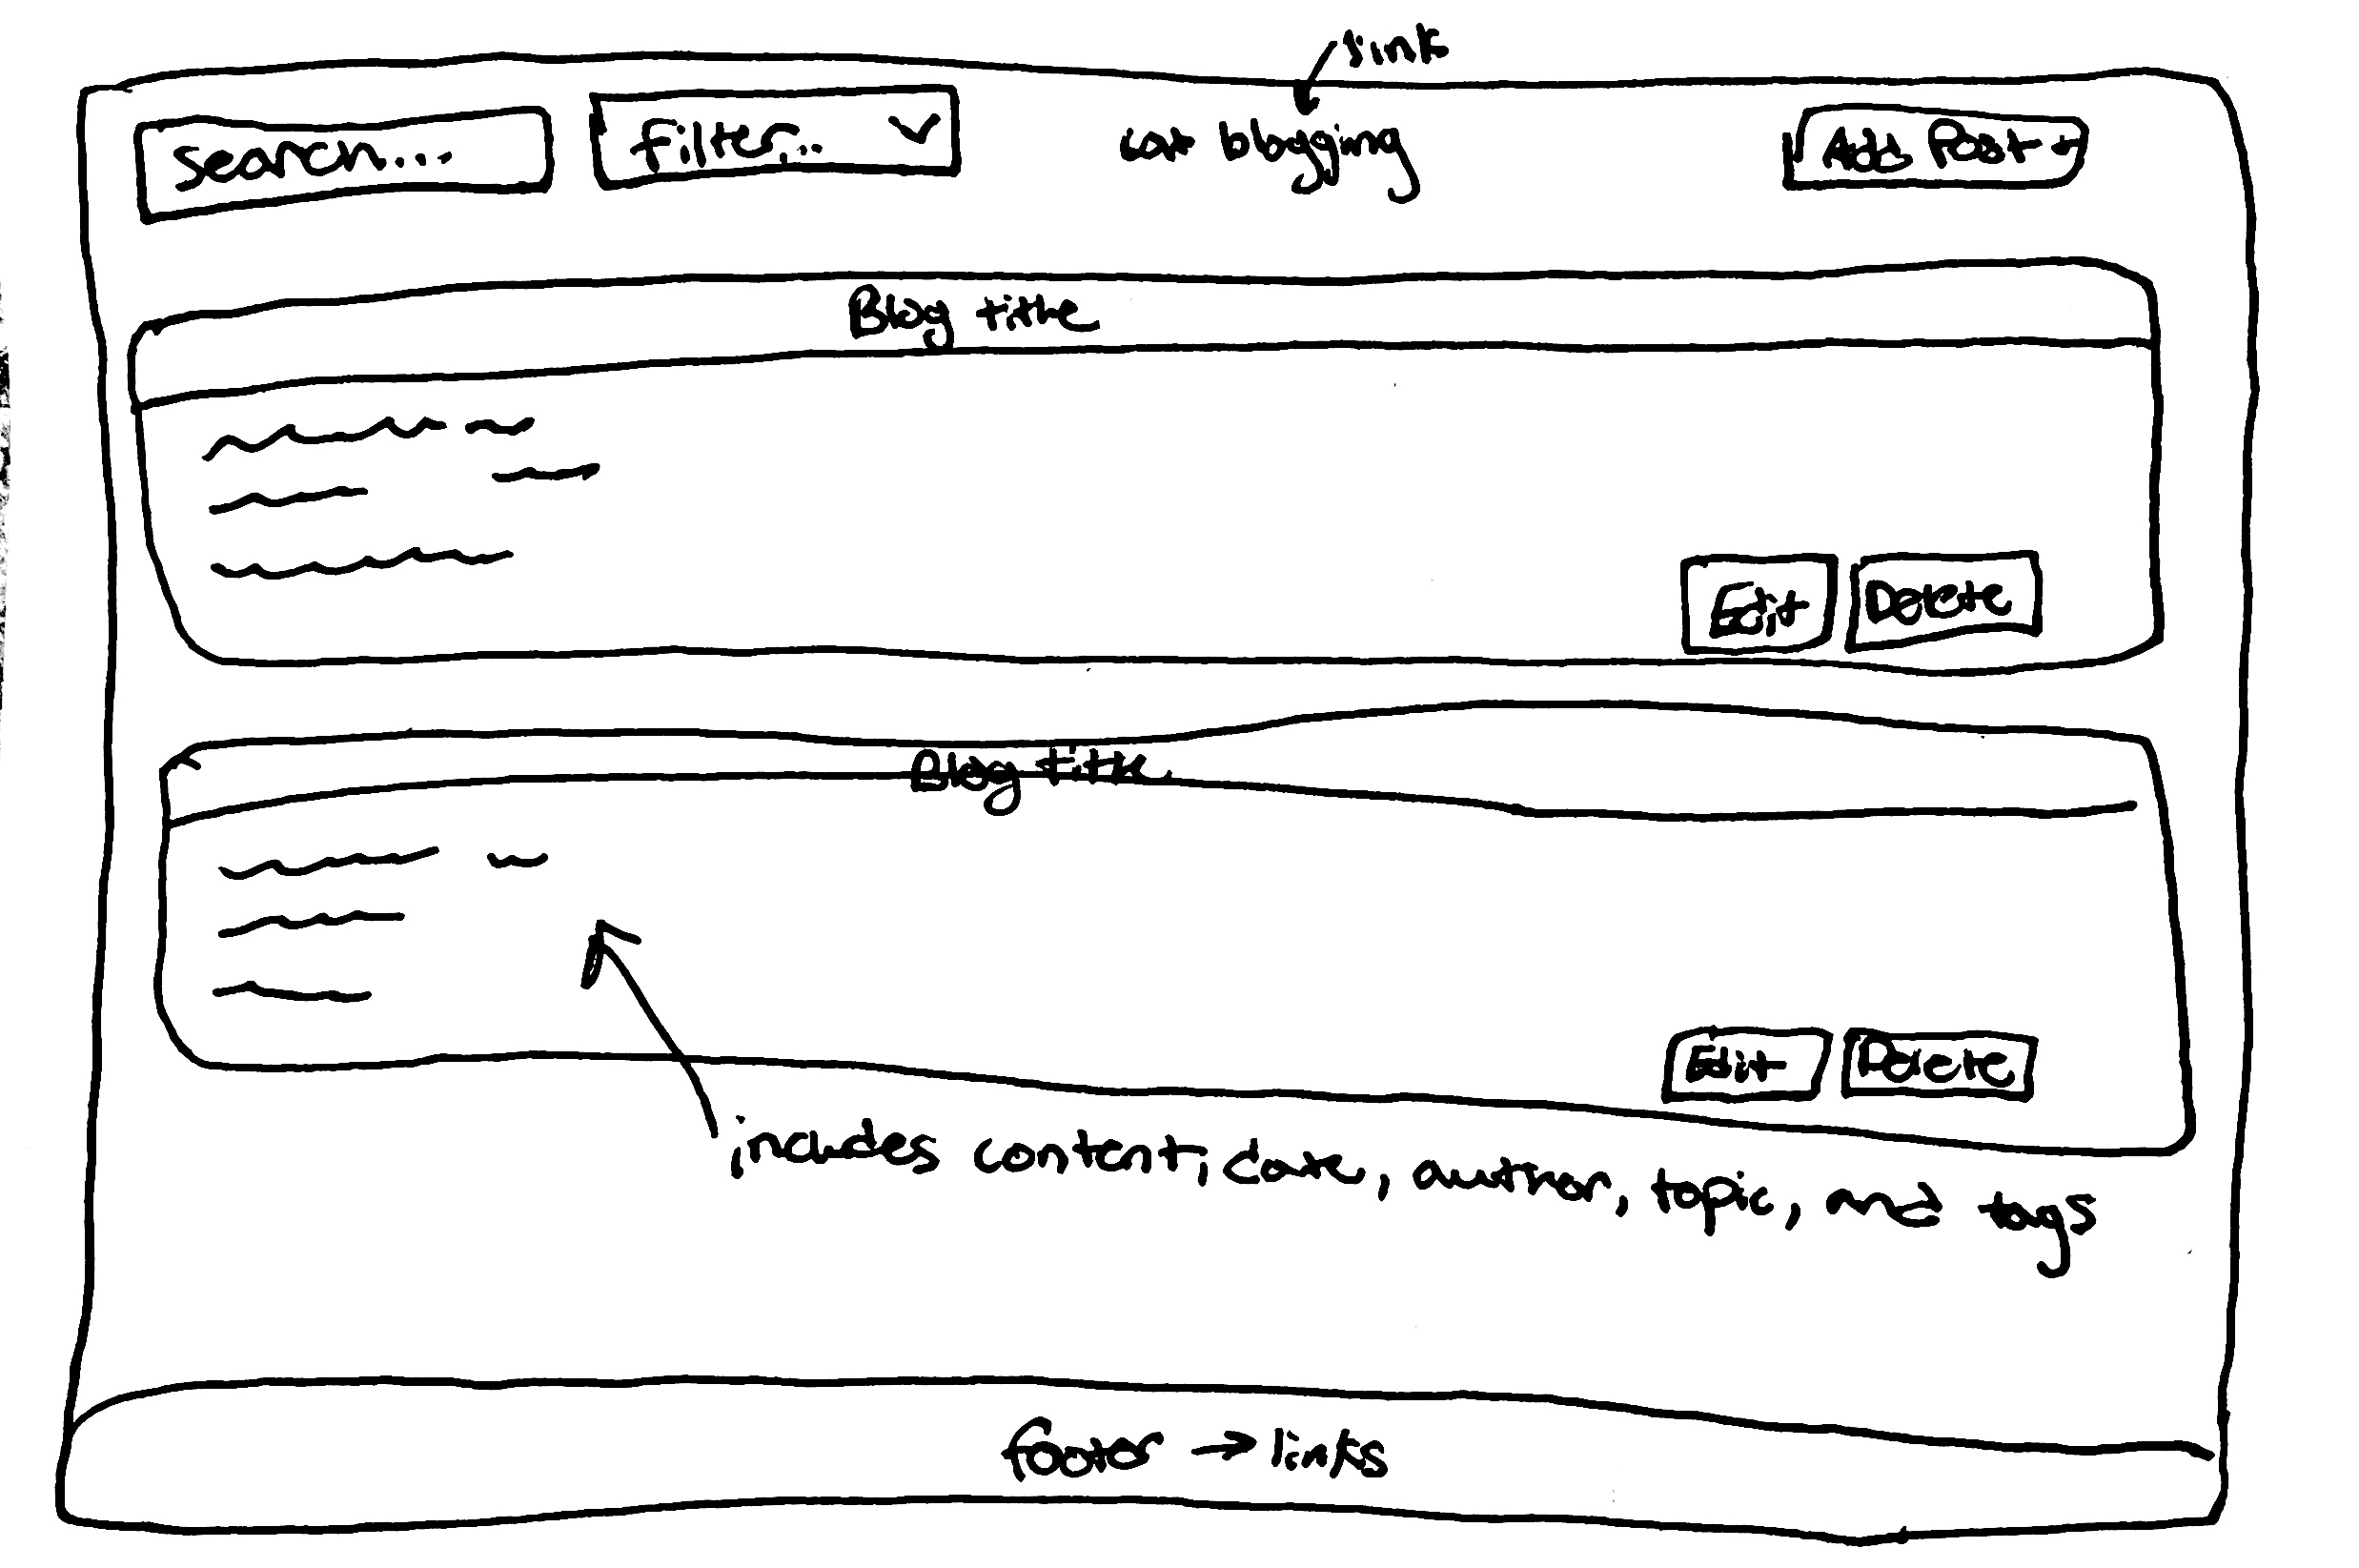 link
search...
Filter...
cat blogging
Add Post +
Blog title
Edit
Delete
Blog title
Edit
Delete
includes content, date, author, topic, and tags
footer → links